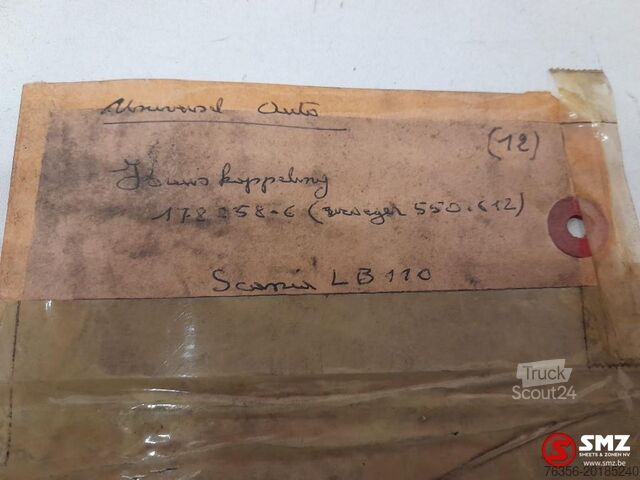 Universel Auto
(12)
koppeling
178258-6 (vroeger 550.612)
Scania LB 110
Truck
Scout24
SMZ
SMEETS & ZONEN NV
www.smz.be
76356-20185240